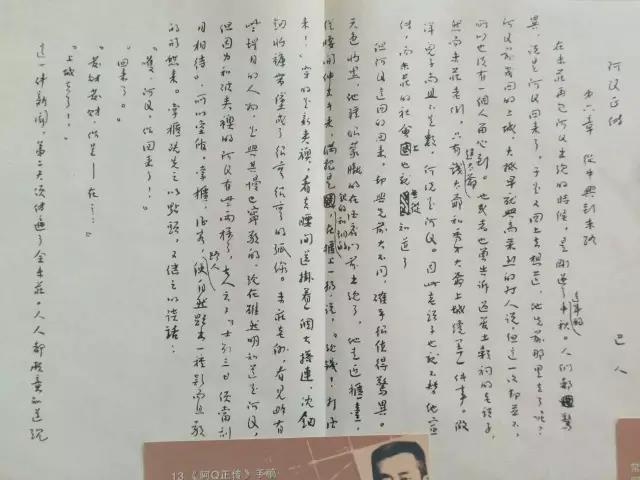 阿Q正傳
第六章 從中興到末路 巴人
在未莊再看見阿Q出現的時候,是剛過了這年的中秋。人們都驚
異,說是阿Q回來了,于是又回上去想道,他先前那里去了呢?
阿Q前幾回的上城,大抵早就興高采烈的對人說,但這一次却並不,
所以也沒有一個人留心到。他或者也曾告訴過管土穀祠的老頭子,
然而未莊老例,只有趙太爺錢太爺和秀才大爺上城纔算一件事。假
洋鬼子尚且不足數,何況是阿Q。因此老頭子也就不替他宣
傳,而未莊的社會上也就無從知道了
但阿Q這回的回來,却與先前大不同,確乎很值得驚異。
天色將黑,他睡眼朦朧的在酒店門前出現了,他走近櫃臺,
從腰間伸出手來,滿把是銀的和銅的,在櫃上一扔,說,“現錢!打酒
來!”穿的是新夾襖,看去腰間還掛着一個大搭連,沈鈿
鈿的將褲帶墜成了很彎很彎的弧線。未莊老例,看見略有
些醒目的人物,是與其慢也寧敬的,現在雖然明知道是阿Q,
但因為和破夾襖的阿Q有些兩樣了,古人云,“士別三日便當刮
目相待”,所以堂倌,掌櫃,酒客,路人,便自然顯出一種疑而且敬
的形態來。掌櫃既先之以點頭,又繼之以談話:
“豁,阿Q,你回來了!”
“回來了。”
“發財發財,你是——在……”
“上城去了!”
這一件新聞,第二天便傳遍了全未莊。人人都願意知道現
13《阿Q正传》手稿